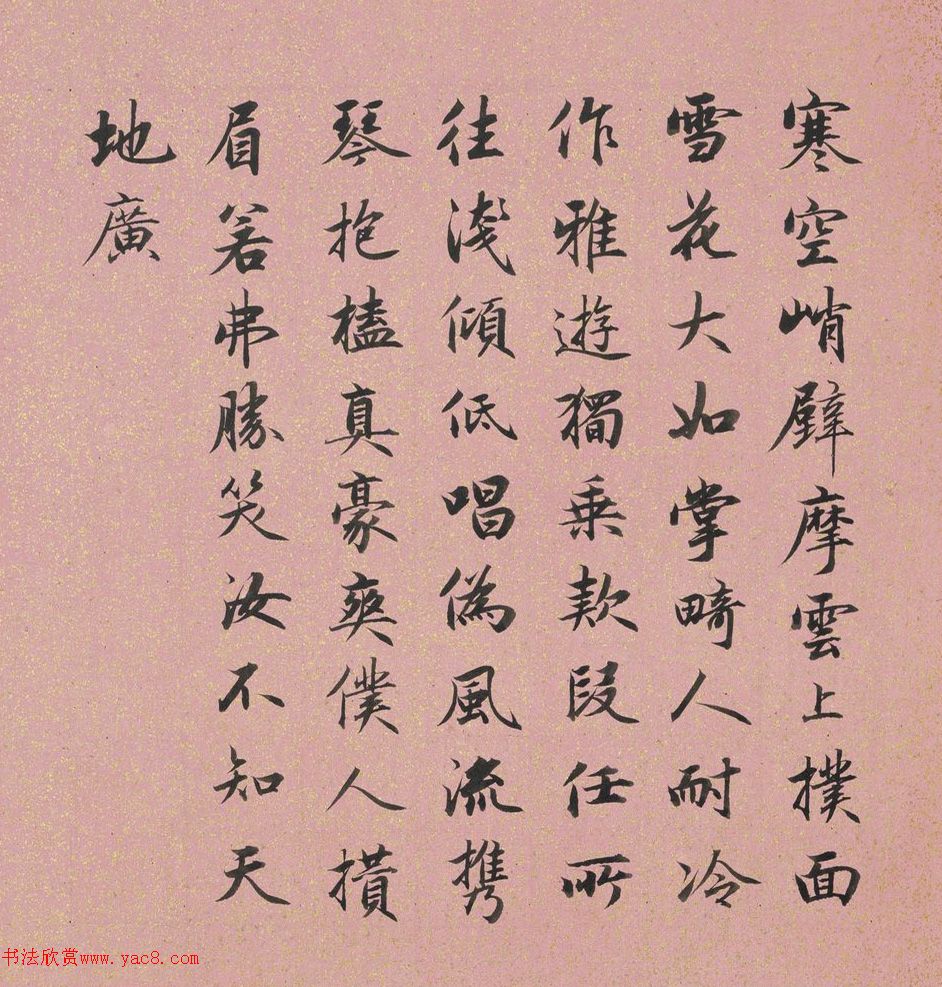 寒空峭壁摩雲上撲面
雪花大如掌畸人耐冷
作雅遊獨乗款段任所
往淺傾低唱偽風流携
琴抱榼真豪爽僕人攢
眉若弗勝笑汝不知天
地廣
书法欣赏www.yac8.com